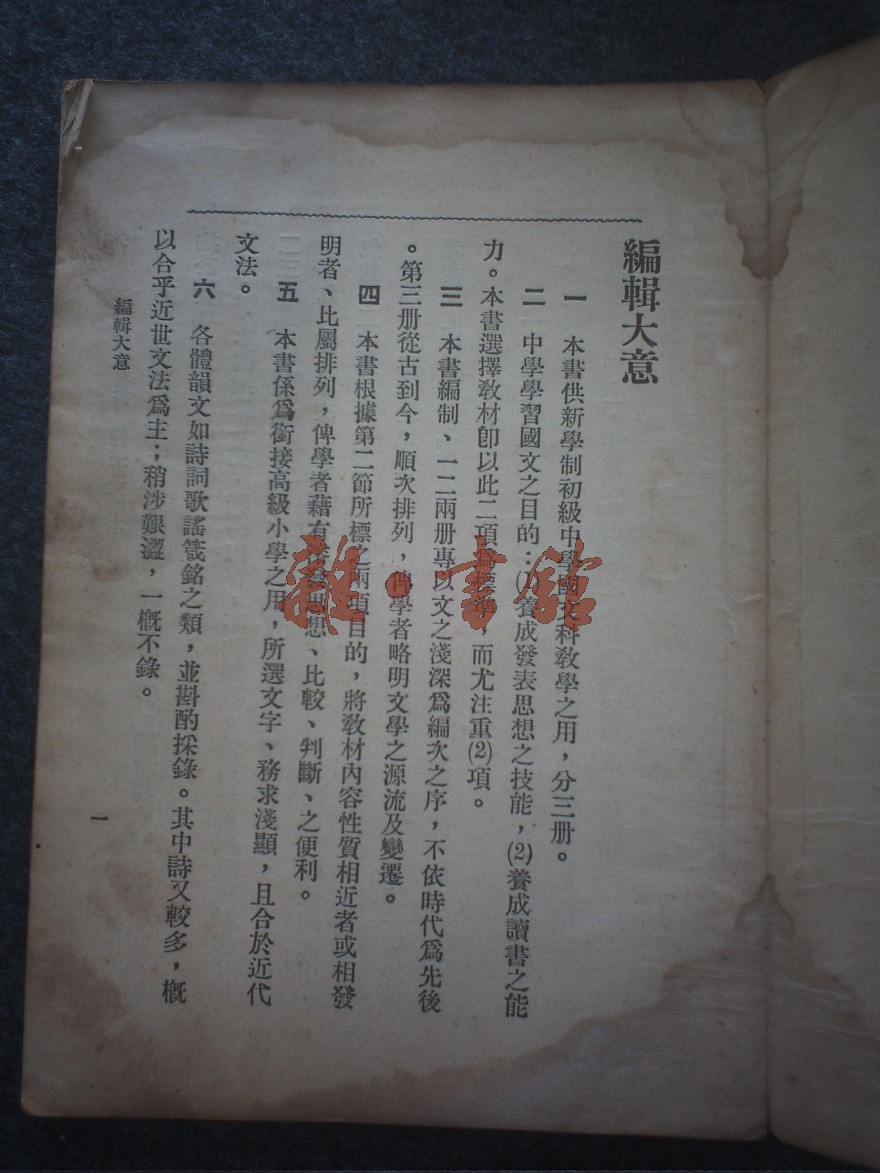 編輯大意
一　本書供新學制初級中學國文科敎學之用，分三册。
二　中學學習國文之目的：(1)養成發表思想之技能，(2)養成讀書之能
力。本書選擇敎材卽以此二項爲標準，而尤注重(2)項。
三　本書編制、一二兩册專以文之淺深爲編次之序，不依時代爲先後
。第三册從古到今，順次排列，俾學者略明文學之源流及變遷。
四　本書根據第二節所標之兩項目的，將敎材內容性質相近者或相發
明者、比屬排列，俾學者藉有思想、比較、判斷、之便利。
五　本書係爲銜接高級小學之用，所選文字、務求淺顯，且合於近代
文法。
六　各體韻文如詩詞歌謠箴銘之類，並斟酌採錄。其中詩又較多，概
以合乎近世文法爲主；稍涉艱澀，一概不錄。
編輯大意
一
雜·書館